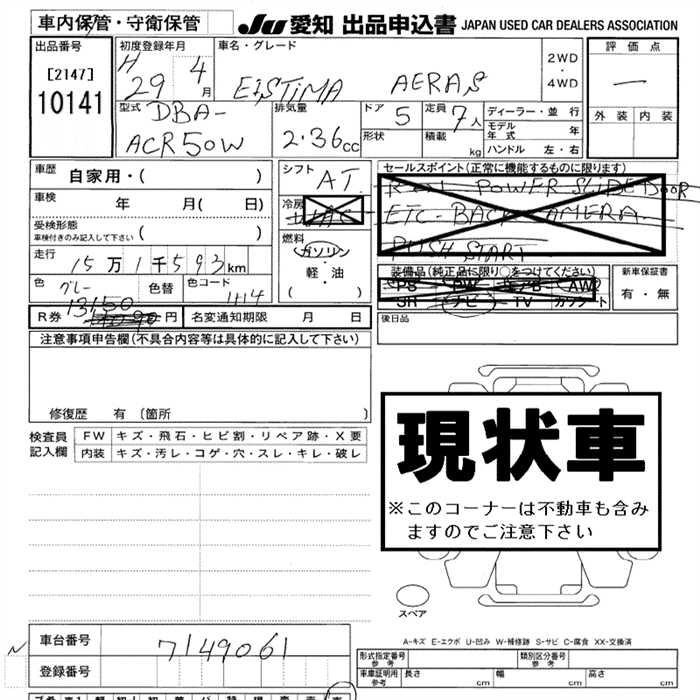 車内保管・守衛保管
JU 愛知 出品申込書 JAPAN USED CAR DEALERS ASSOCIATION
出品番号
[2147]
10141
初度登録年月
H 29 年 4 月
車名・グレード
ESTIMA AERAS
2WD
・
4WD
評価点
—
外装 内装
型式
DBA-
ACR50W
排気量
2.36cc
ドア 5
形状
定員 7人
積載 kg
ディーラー・並行
モデル年式 年
ハンドル 左・右
車歴 自家用・( )
車検 年 月( 日)
受検形態
車検付きのみ記入して下さい ( )
走行 15万1千593km
色 グレー 色替 色コード 1114
R券 13150 円 名変通知期限 月 日
シフト AT
冷房
燃料
ガソリン
・
軽・油
( )
セールスポイント(正常に機能するものに限ります)
POWER SLIDE DOOR
ETC - BACK CAMERA
PUSH START
装備品(純正品に限り○をつけてください)
PS PW エアB AW
SR ナビ TV カワシート
新車保証書
有・無
後日品
注意事項申告欄(不具合内容等は具体的に記入して下さい)
修復歴 有 〔箇所
検査員記入欄
FW キズ・飛石・ヒビ割・リペア跡・X要
内装 キズ・汚レ・コゲ・穴・スレ・キレ・破レ
現状車
※このコーナーは不動車も含み
ますのでご注意下さい
スペア
A-キズ E-エクボ U-凹み W-補修跡 S-サビ C-腐食 XX-交換済
車台番号 7149061
登録番号
形式指定番号
参考
類別区分番号
参考
車庫証明用
参考
長さ cm 幅 cm 高さ cm